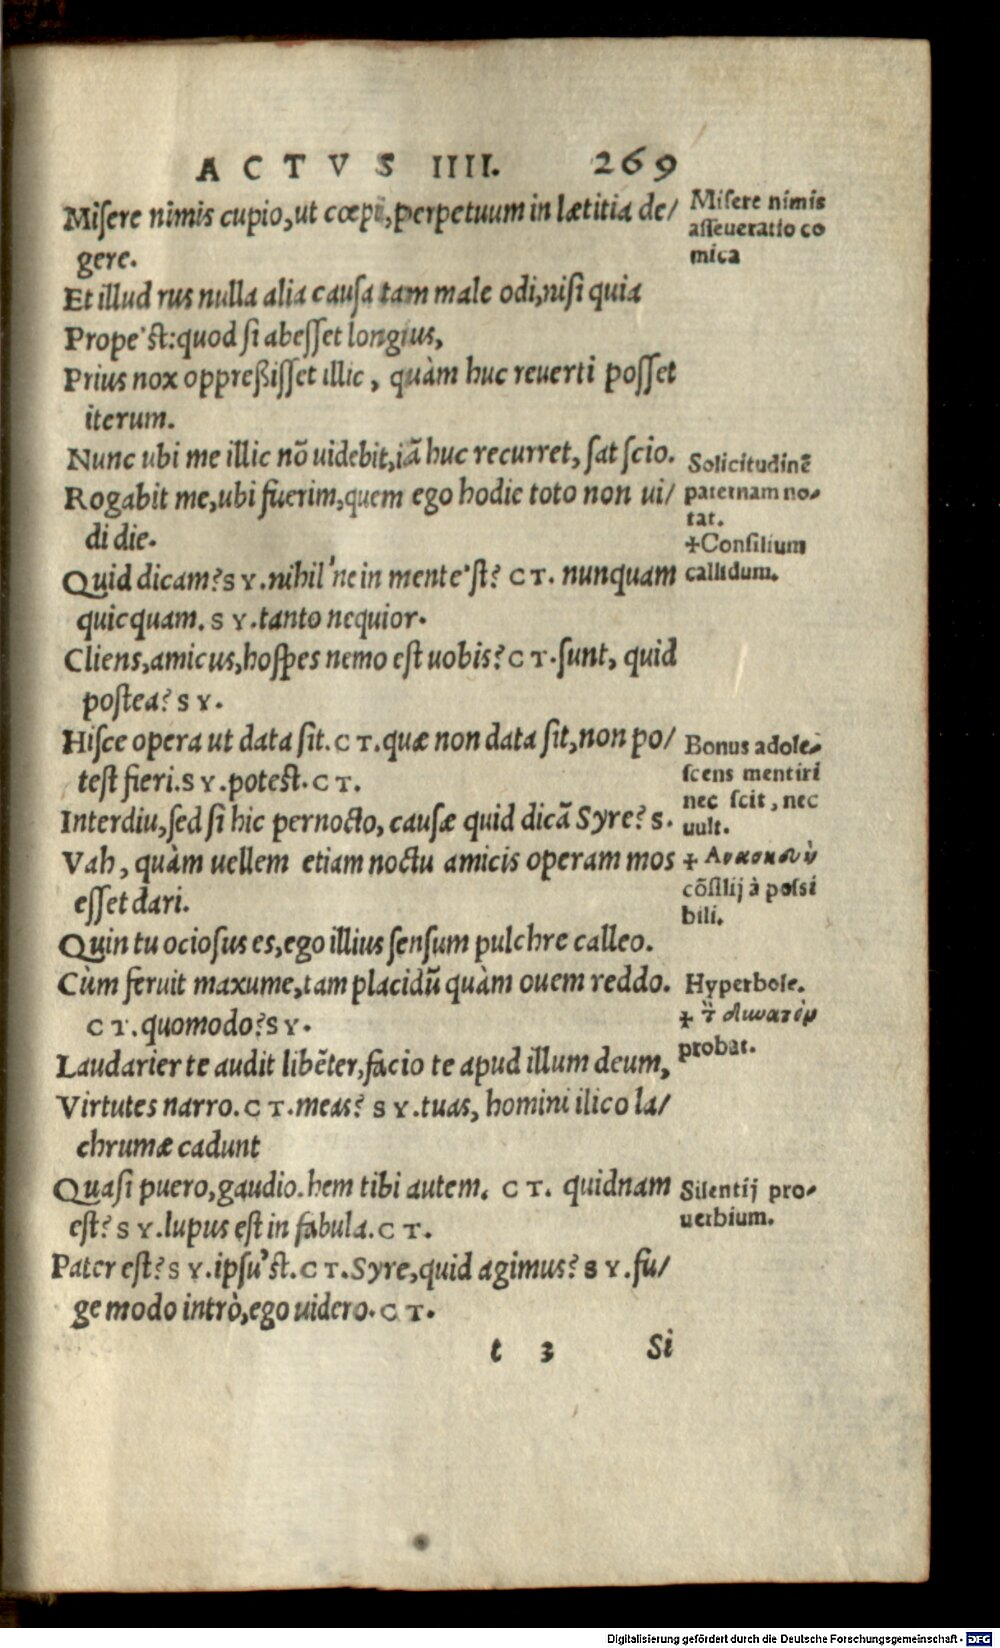 ACTVS IIII. 269
Misere nimis cupio, ut cœpi, perpetuum in lætitia de/
gere.
Et illud rus nulla alia causa tam male odi, nisi quia
Prope'st: quod si abesset longius,
Prius nox oppreßisset illic, quàm huc reuerti posset
iterum.
Nunc ubi me illic nõ uidebit, iã huc recurret, sat scio.
Rogabit me, ubi fuerim, quem ego hodie toto non ui/
di die.
Quid dicam? SY. nihil'ne in mente'st? CT. nunquam
quicquam. SY. tanto nequior.
Cliens, amicus, hospes nemo est uobis? CT. sunt, quid
postea? SY.
Hisce opera ut data sit. CT. quæ non data sit, non po/
test fieri. SY. potest. CT.
Interdiu, sed si hic pernocto, causæ quid dicã Syre? S.
Vah, quàm uellem etiam noctu amicis operam mos
esset dari.
Quin tu ociosus es, ego illius sensum pulchre calleo.
Cùm feruit maxume, tam placidũ quàm ouem reddo.
CT. quomodo? SY.
Laudarier te audit libẽter, facio te apud illum deum,
Virtutes narro. CT. meas? SY. tuas, homini ilico la/
chrumæ cadunt
Quasi puero, gaudio. hem tibi autem. CT. quidnam
est? SY. lupus est in fabula. CT.
Pater est? SY. ipsu'st. CT. Syre, quid agimus? SY. fu/
ge modo intrò, ego uidero. CT.
t 3 Si
Misere nimis
asseueratio co
mica
Solicitudinẽ
paternam no-
tat.
✢Consilium
callidum.
Bonus adole-
scens mentiri
nec scit, nec
uult.
✢
cõsilij à possi
bili.
Hyperbole.
✢
probat.
Silentij pro-
uerbium.
Digitalisierung gefördert durch die Deutsche Forschungsgemeinschaft - DFG